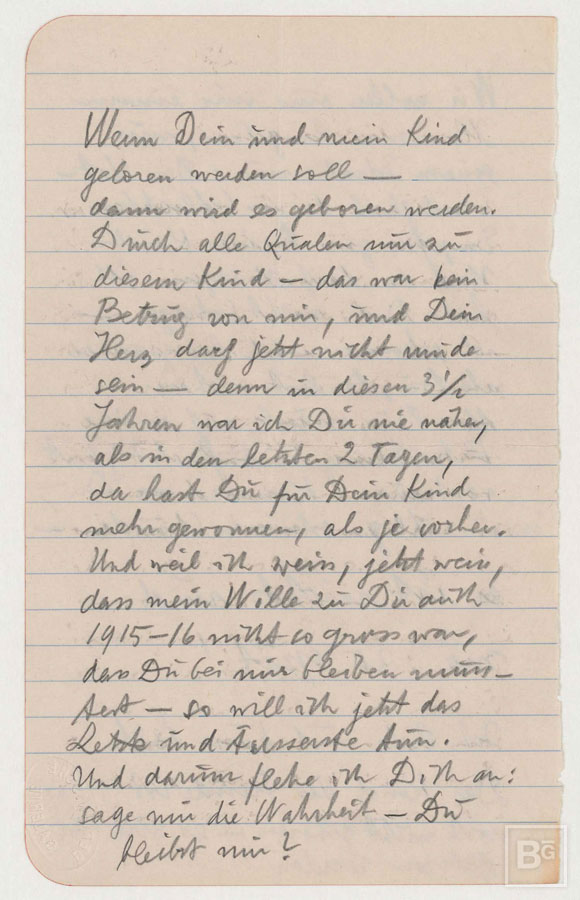 Wenn Dein und mein Kind
geboren werden soll —
dann wird es geboren werden.
Durch alle Qualen nur zu
diesem Kind — das war kein
Betrug von mir, und Dein
Herz darf jetzt nicht müde
sein — denn in diesen 3 1/2
Jahren war ich Dir nie näher,
als in den letzten 2 Tagen,
da hast Du für Dein Kind
mehr gewonnen, als je vorher.
Und weil ich weiss, jetzt weiss,
dass mein Wille zu Dir auch
1915–16 nicht so gross war,
dass Du bei mir bleiben muss-
test — so will ich jetzt das
Letzte und Äusserste tun.
Und darum flehe ich Dich an:
sage mir die Wahrheit — Du
bleibst mir?
BG